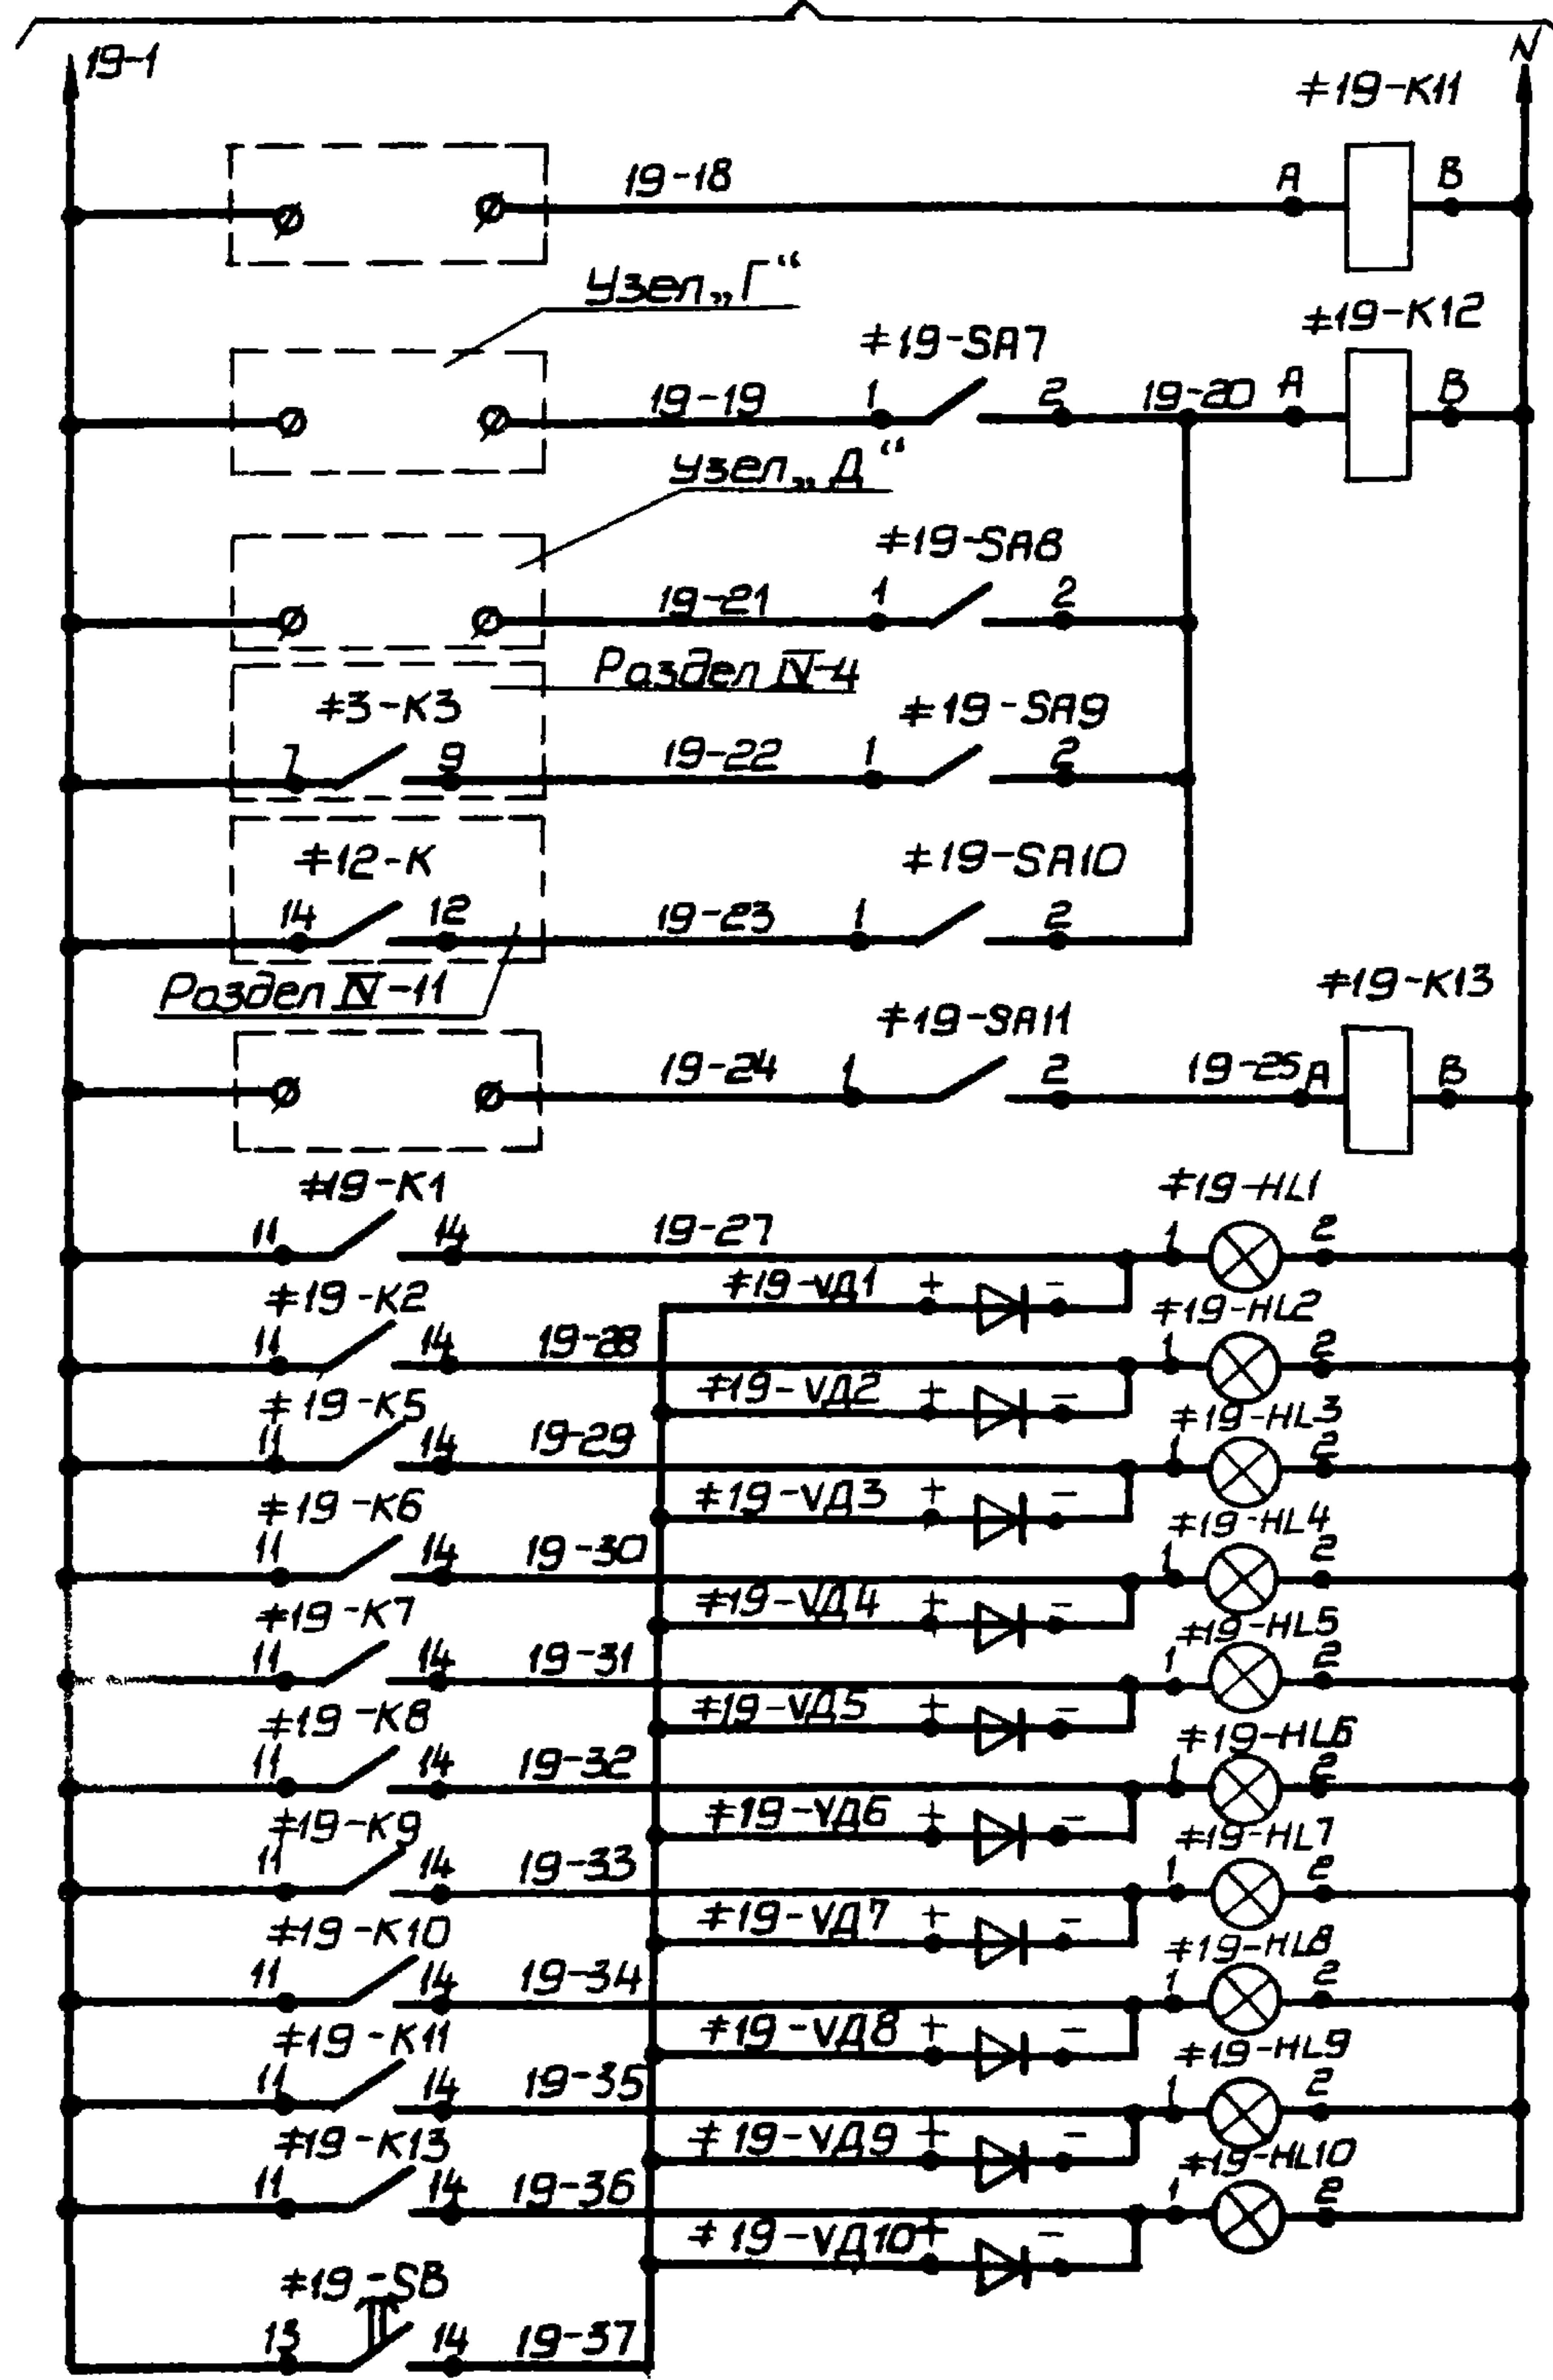 19-1 N
≠19-К11
19-18 А В
Узел „Г“
≠19-SA7 ≠19-К12
19-19 1 2 19-20 А В
Узел „Д“
≠19-SA8
19-21 1 2
Раздел IV-4
≠3-К3 ≠19-SA9
7 9 19-22 1 2
≠12-К ≠19-SA10
14 12 19-23 1 2
Раздел IV-11 ≠19-К13
≠19-SA11
19-24 1 2 19-25 А В
≠19-К1 ≠19-HL1
11 14 19-27 1 2
≠19-VД1 + -
≠19-К2 ≠19-HL2
11 14 19-28 1 2
≠19-VД2 + -
≠19-К5 ≠19-HL3
11 14 19-29 1 2
≠19-VД3 + -
≠19-К6 ≠19-HL4
11 14 19-30 1 2
≠19-VД4 + -
≠19-К7 ≠19-HL5
11 14 19-31 1 2
≠19-VД5 + -
≠19-К8 ≠19-HL6
11 14 19-32 1 2
≠19-VД6 + -
≠19-К9 ≠19-HL7
11 14 19-33 1 2
≠19-VД7 + -
≠19-К10 ≠19-HL8
11 14 19-34 1 2
≠19-VД8 + -
≠19-К11 ≠19-HL9
11 14 19-35 1 2
≠19-VД9 + -
≠19-К13 ≠19-HL10
11 14 19-36 1 2
≠19-VД10 + -
≠19-SB
13 14 19-37